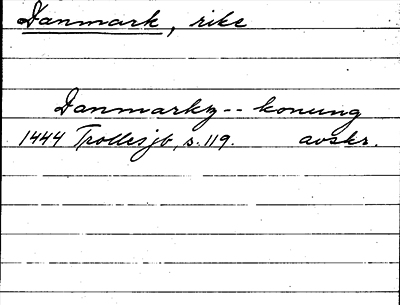 Danmark, rike
Danmarkz -- konung
1444 Trollesjb, s. 119. avskr.